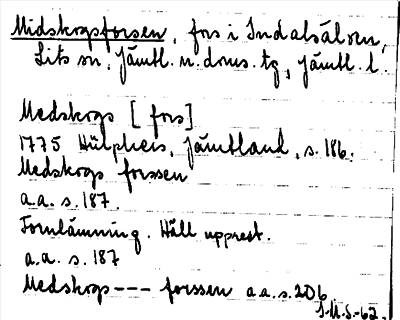 Midskogsforsen, fors i Indalsälven,
Lits sn, Jämtl. n. doms. tg, Jämtl. l.
Medskogs [fors]
1775 Hülphers, Jämtland, s. 186.
Medskogs forssen
a.a. s. 187.
Fornlämning. Häll upprest.
a.a. s. 187
Medskogs --- forssen a.a. s. 206
S.U.S.-62.